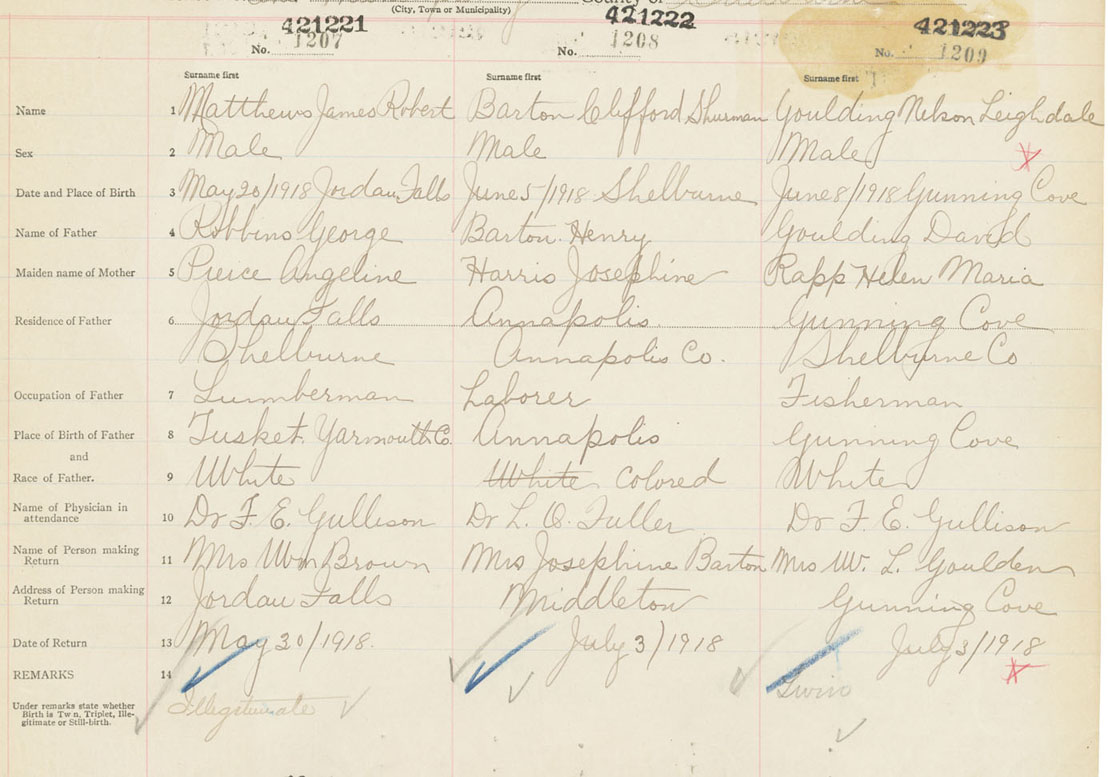 (City, Town or Municipality) County of
421221 421222 421223
No. 1207 No. 1208 No. 1209
Surname first Surname first Surname first
Name 1 Matthews James Robert Barton Clifford Shurman Goulding Nelson Leighdale
Sex 2 Male Male Male
Date and Place of Birth 3 May 20/1918 Jordan Falls June 5/1918 Shelburne June 8/1918 Gunning Cove
Name of Father 4 Robbins George Barton Henry Goulding David
Maiden name of Mother 5 Pierce Angeline Harris Josephine Rapp Helen Maria
Residence of Father 6 Jordan Falls Annapolis Gunning Cove
Shelburne Annapolis Co. Shelburne Co
Occupation of Father 7 Lumberman Laborer Fisherman
Place of Birth of Father 8 Tusket Yarmouth Co. Annapolis Gunning Cove
and
Race of Father. 9 White White Colored White
Name of Physician in
attendance 10 Dr F. E. Gullison Dr L. O. Fuller Dr F. E. Gullison
Name of Person making
Return 11 Mrs Wm Brown Mrs Josephine Barton Mrs W. L. Goulden
Address of Person making
Return 12 Jordan Falls Middleton Gunning Cove
Date of Return 13 May 20/1918. July 3/1918 July 3/1918
REMARKS 14 Twin
Under remarks state whether
Birth is Tw n, Triplet, Ille-
gitimate or Still-birth.
Illegitimate